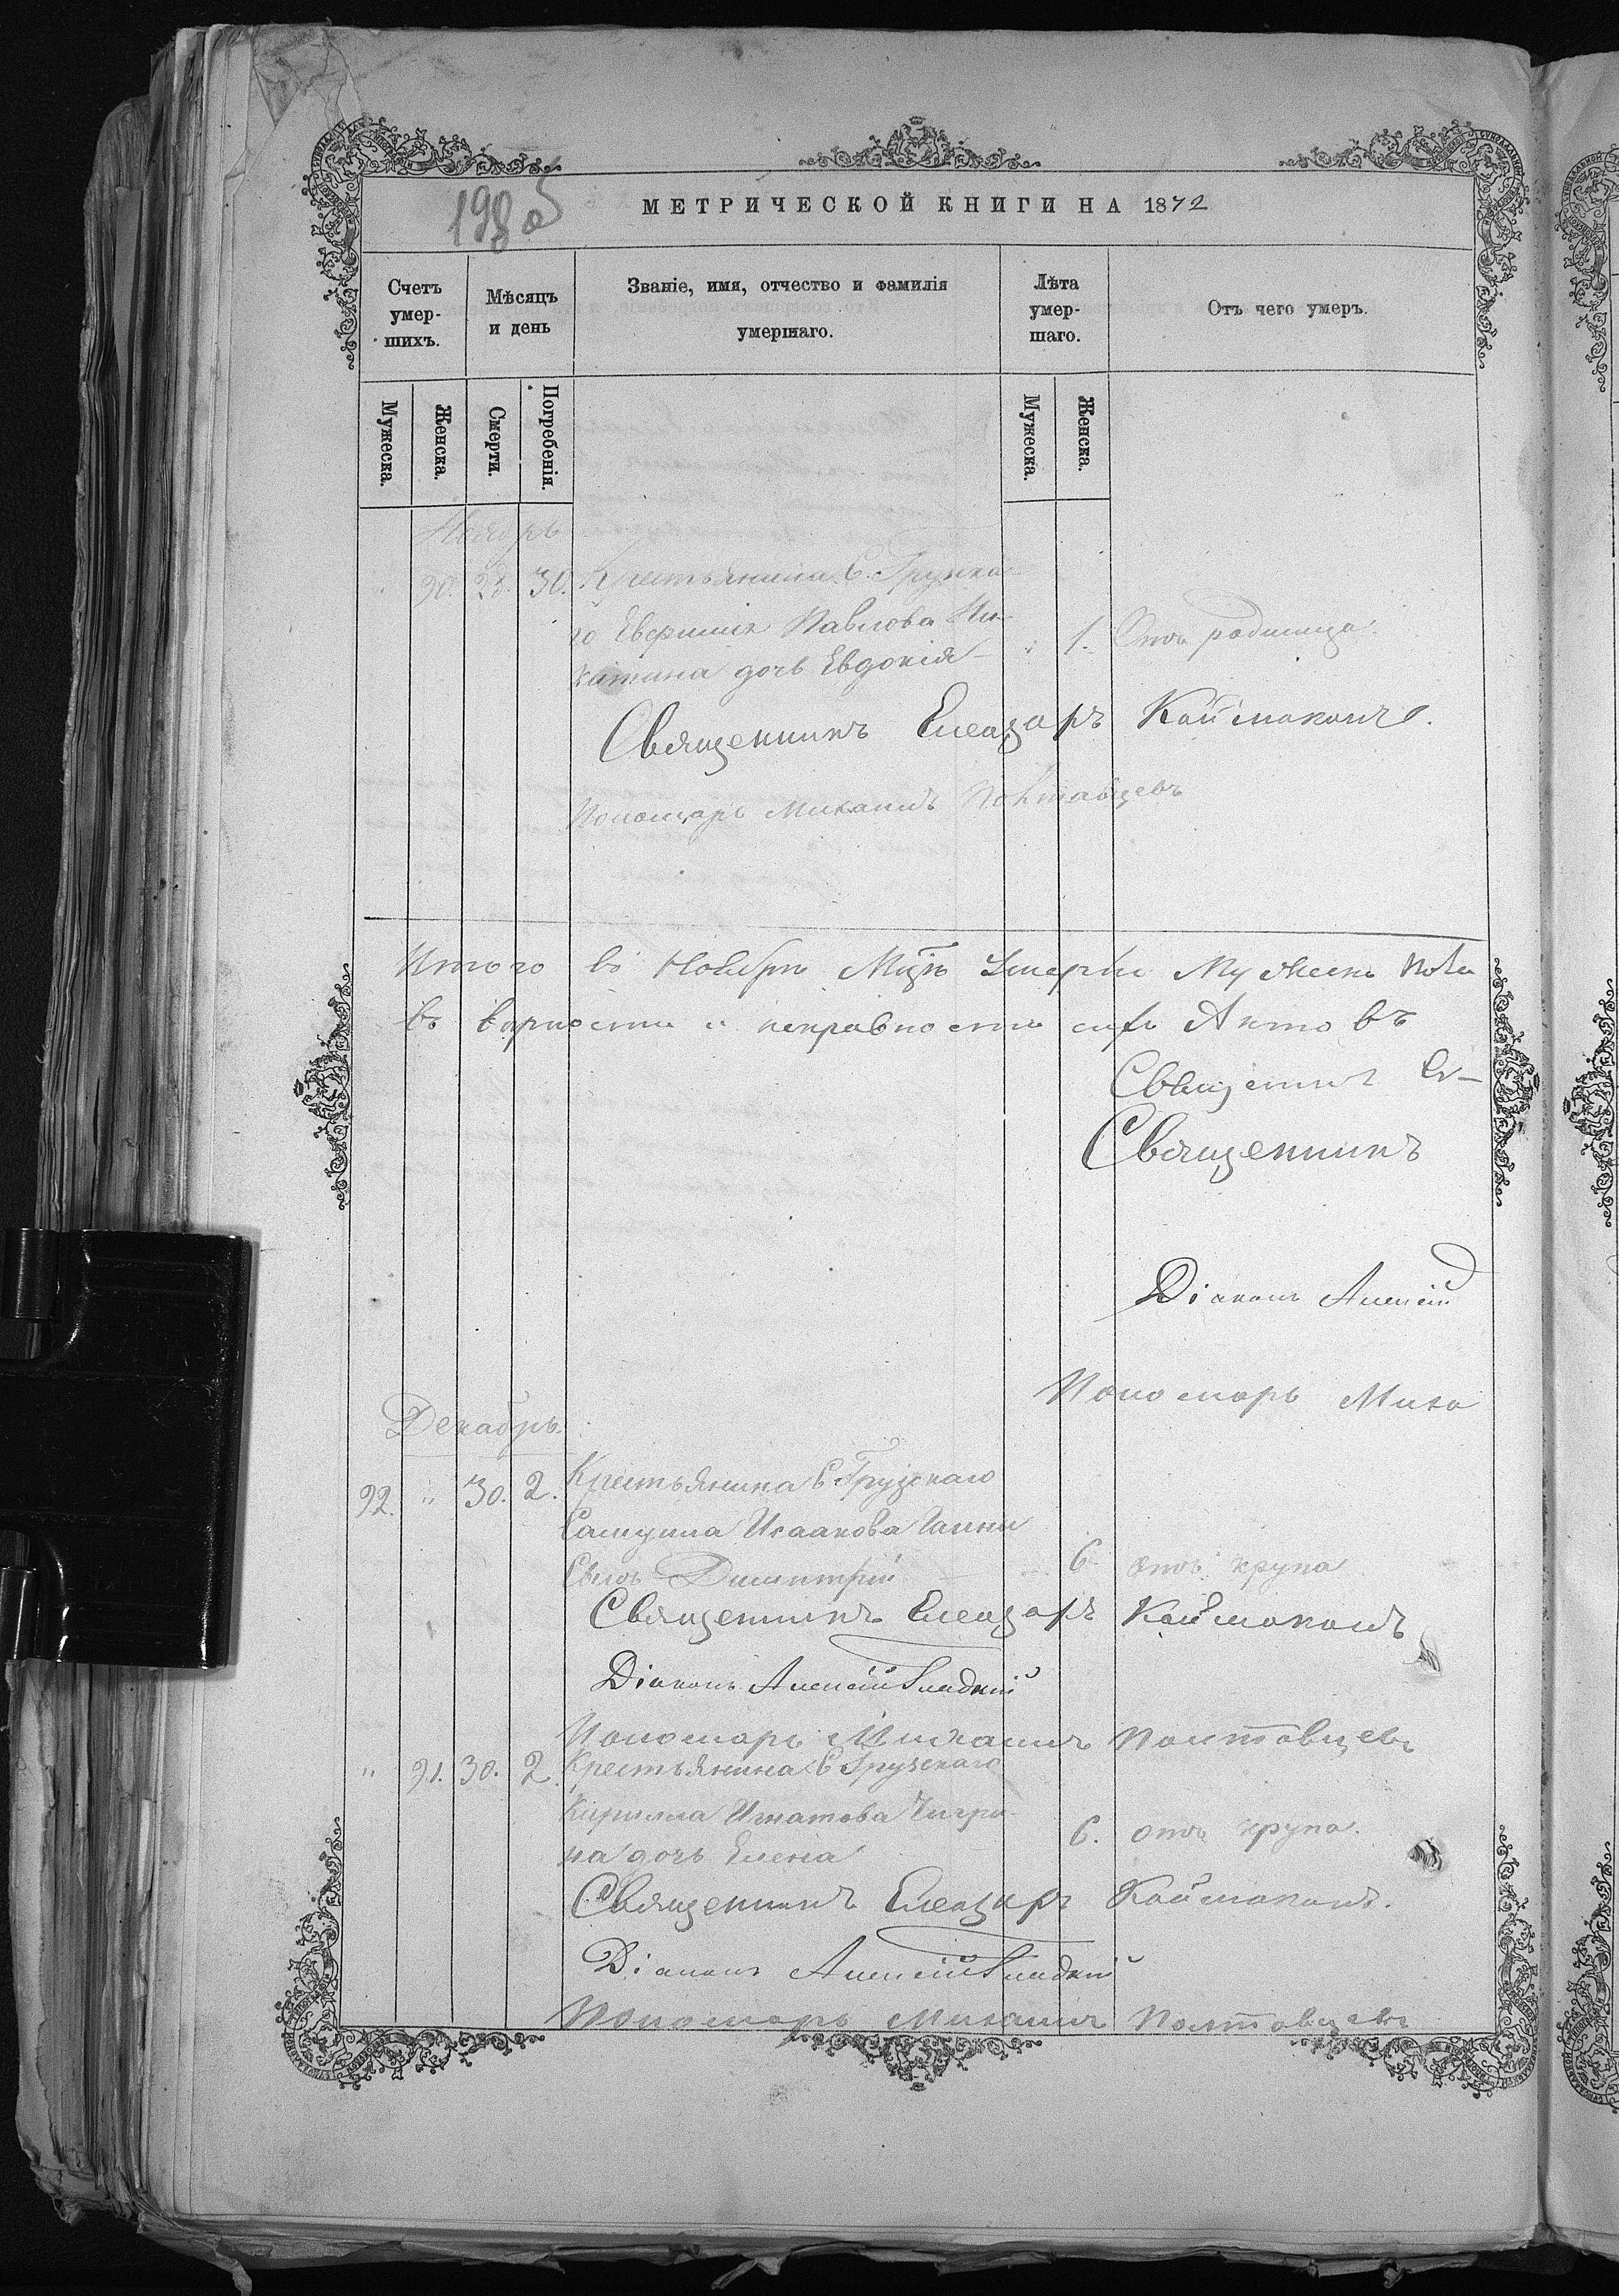 МЕТРИЧЕСКОЙ КНИГИ НА 1872
Счетъ умер-шихъ.
Мѣсяцъ и день
Званіе, имя, отчество и фамилія умершаго.
Лѣта умер-шаго.
Отъ чего умеръ.
Мужеска.
Женска.
Смерти.
Погребенія.
Мужеска.
Женска.
Ноябрь
" 90. 28. 30. Крестьянина С. Грузка-
го Павлова Ни-
китина дочь Евдокія " 1. Отъ родимца.
Священникъ Елеазаръ Каймаканъ.
Пономарь Михаилъ Полтавцевъ
Итого въ Ноябрѣ Мцѣ умерло Мужеск пола
въ вѣрности и исправности сихъ Актовъ
Священник
Священникъ
Діаконъ Алексій
Пономарь Миха
Декабрь.
92. " 30. 2. Крестьянина С. Грузскаго
Исаакова
Сынъ Димитрій 6 отъ крупа
Священникъ Елеазаръ Каймаканъ
Діаконъ Алексій Гладкій
Пономарь Михаилъ Полтавцевъ
" 91. 30. 2. Крестьянина С. Грузскаго
Кирилла Игнатова Чигри-
на дочь Елена 6. отъ крупа.
Священникъ Елеазаръ Каймаканъ.
Діаконъ Алексій Гладкій
Пономарь Михаилъ Полтавцевъ